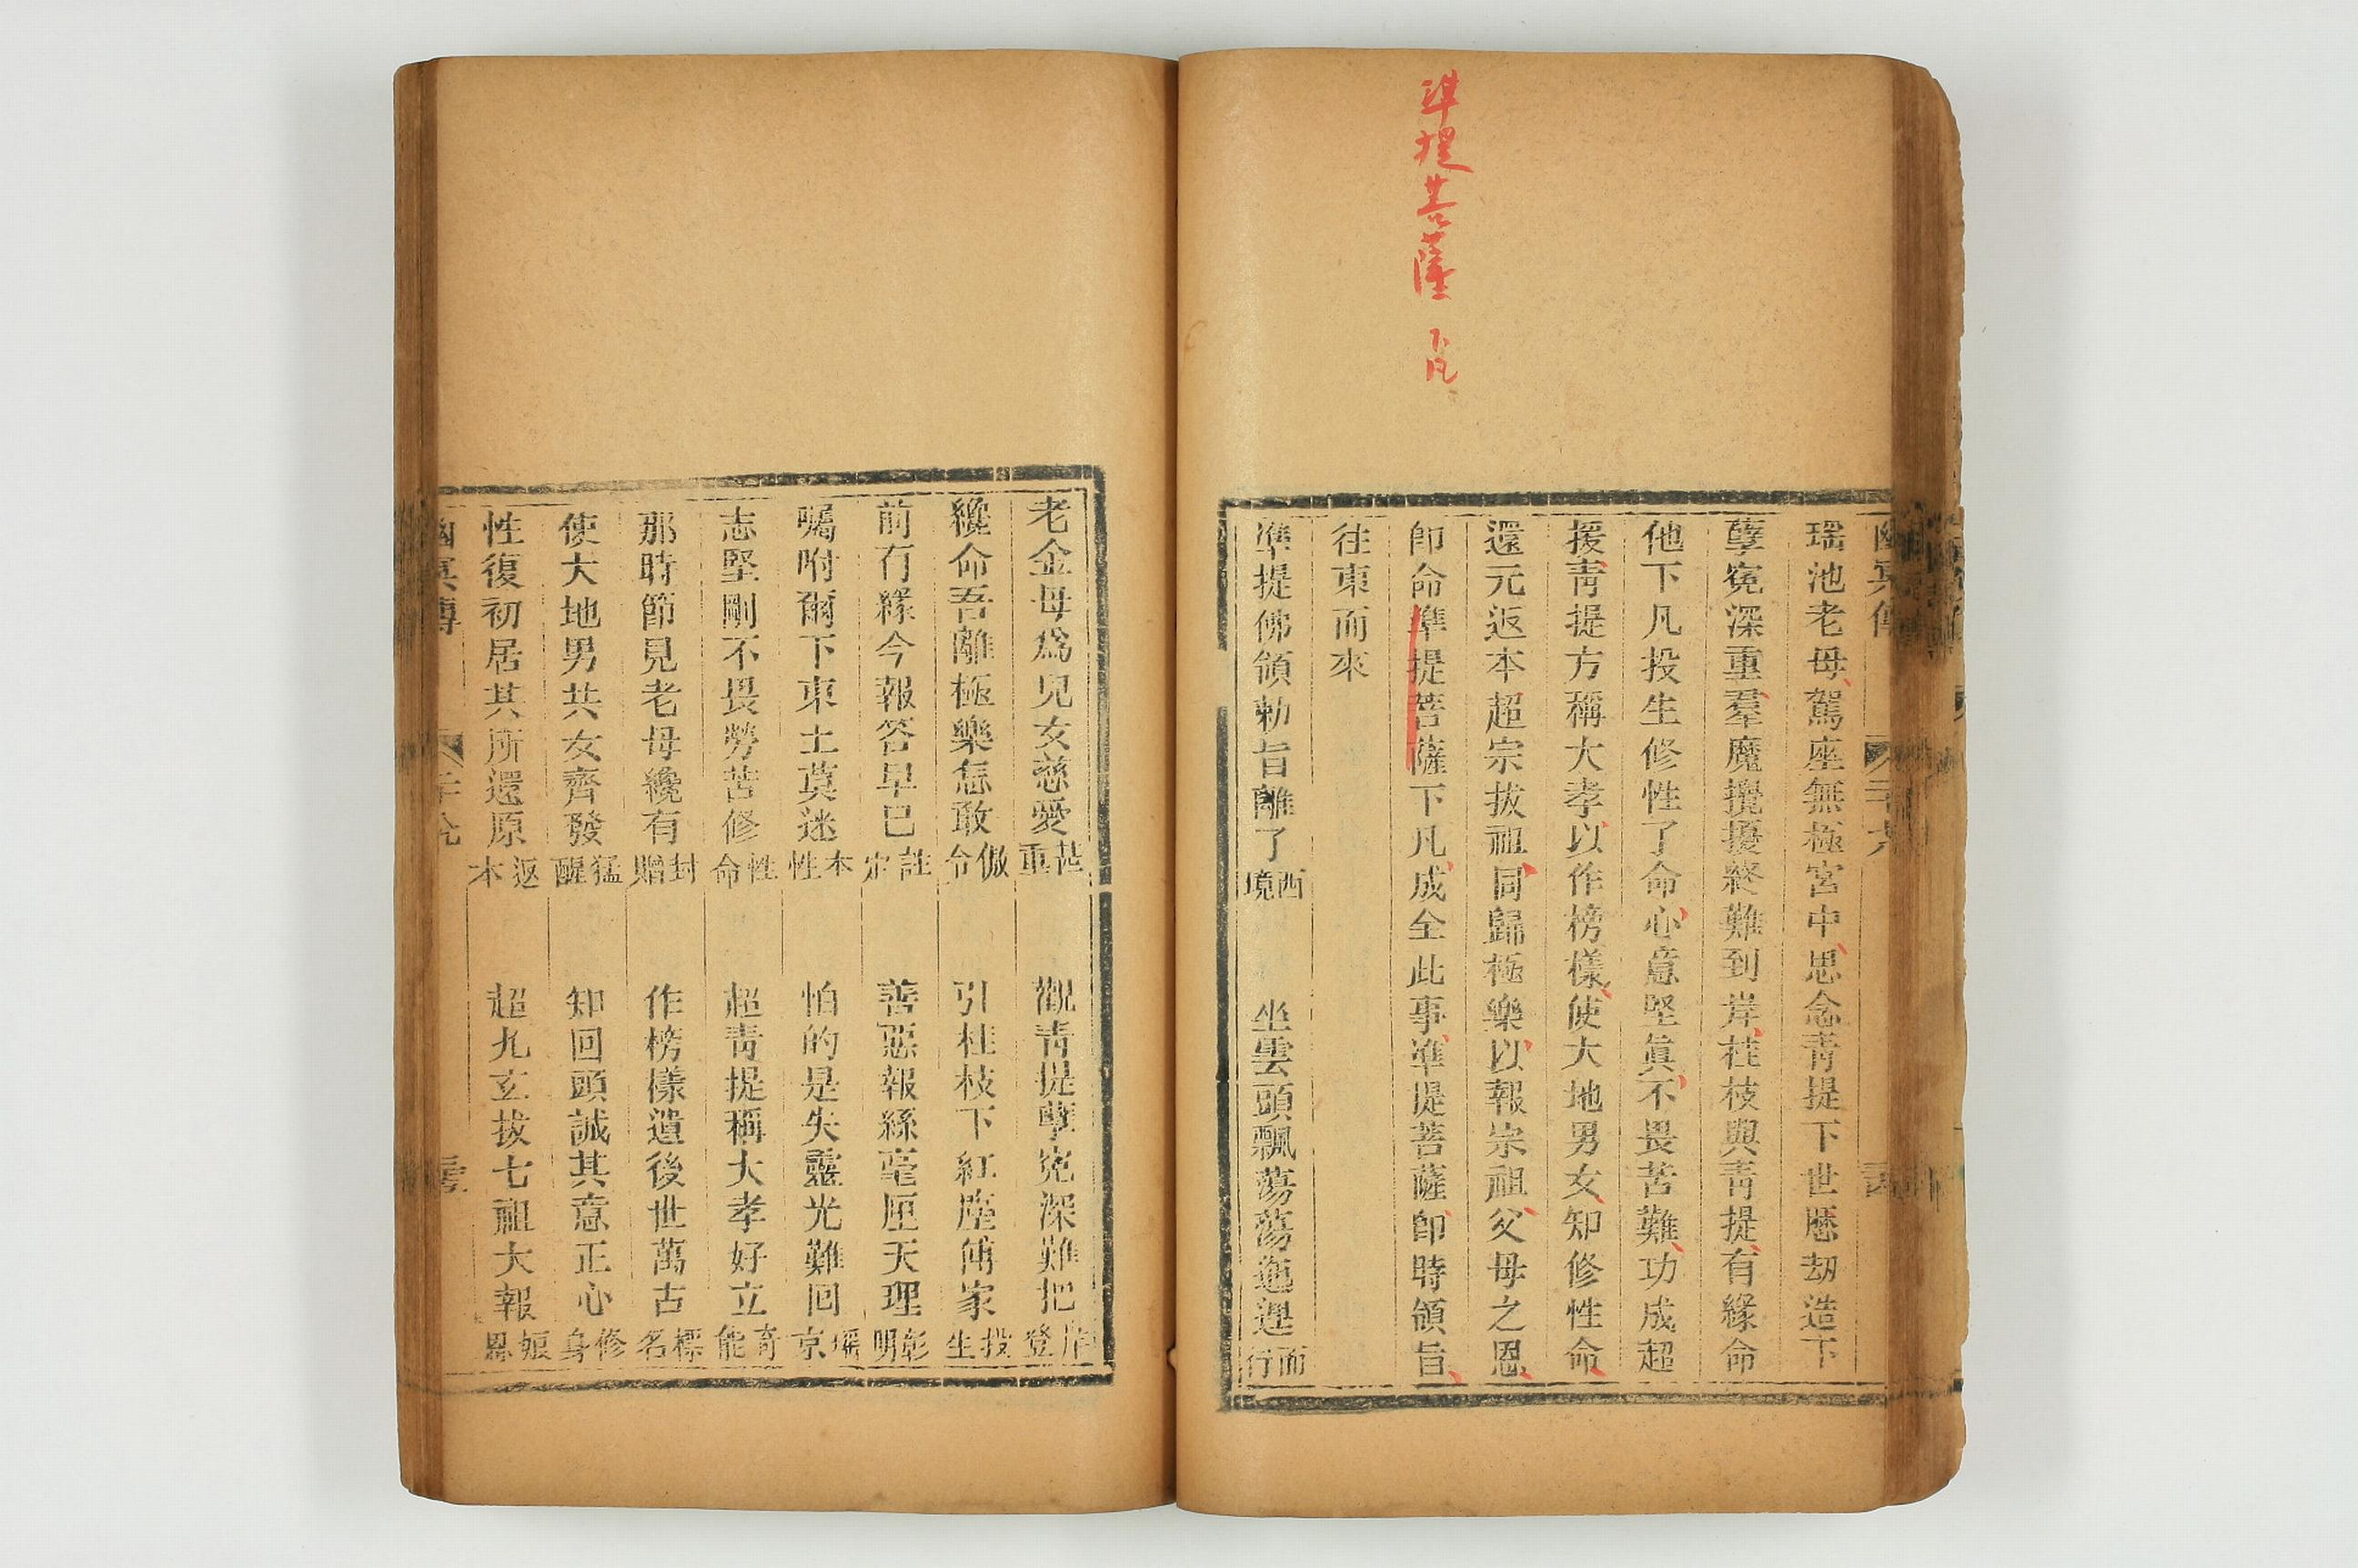 準提菩薩 下凡
瑶池老母駕座無極宮中思念青提下世歷劫造下
孽寃深重羣魔攪擾終難到岸桂枝與青提有緣命
他下凡投生修性了命心意堅眞不畏苦難功成超
援青提方稱大孝以作榜樣使大地男女知修性命
還元返本超宗拔祖同歸極樂以報宗祖父母之恩
卽命準提菩薩下凡成全此事準提菩薩卽時領旨
往東而來
準提佛領勅旨離了西境 坐雲頭飄蕩蕩迤逞而行
老金母爲兒女慈愛甚重 觀青提孽寃深難把岸登
纔命吾離極樂怎敢傲令 引桂枝下紅塵傅家投生
前有緣今報答早已註定 善惡報絲毫厘天理彰明
囑咐爾下東土莫迷本性 怕的是失靈光難回瑤京
志堅剛不畏勞苦修性命 超青提稱大孝好立奇能
那時節見老母纔有封贈 作榜樣遺後世萬古標名
使大地男共女齊發猛醒 知回頭誠其意正心修身
性復初居其所還原返本 超九玄拔七祖大報娘恩
幽冥傳